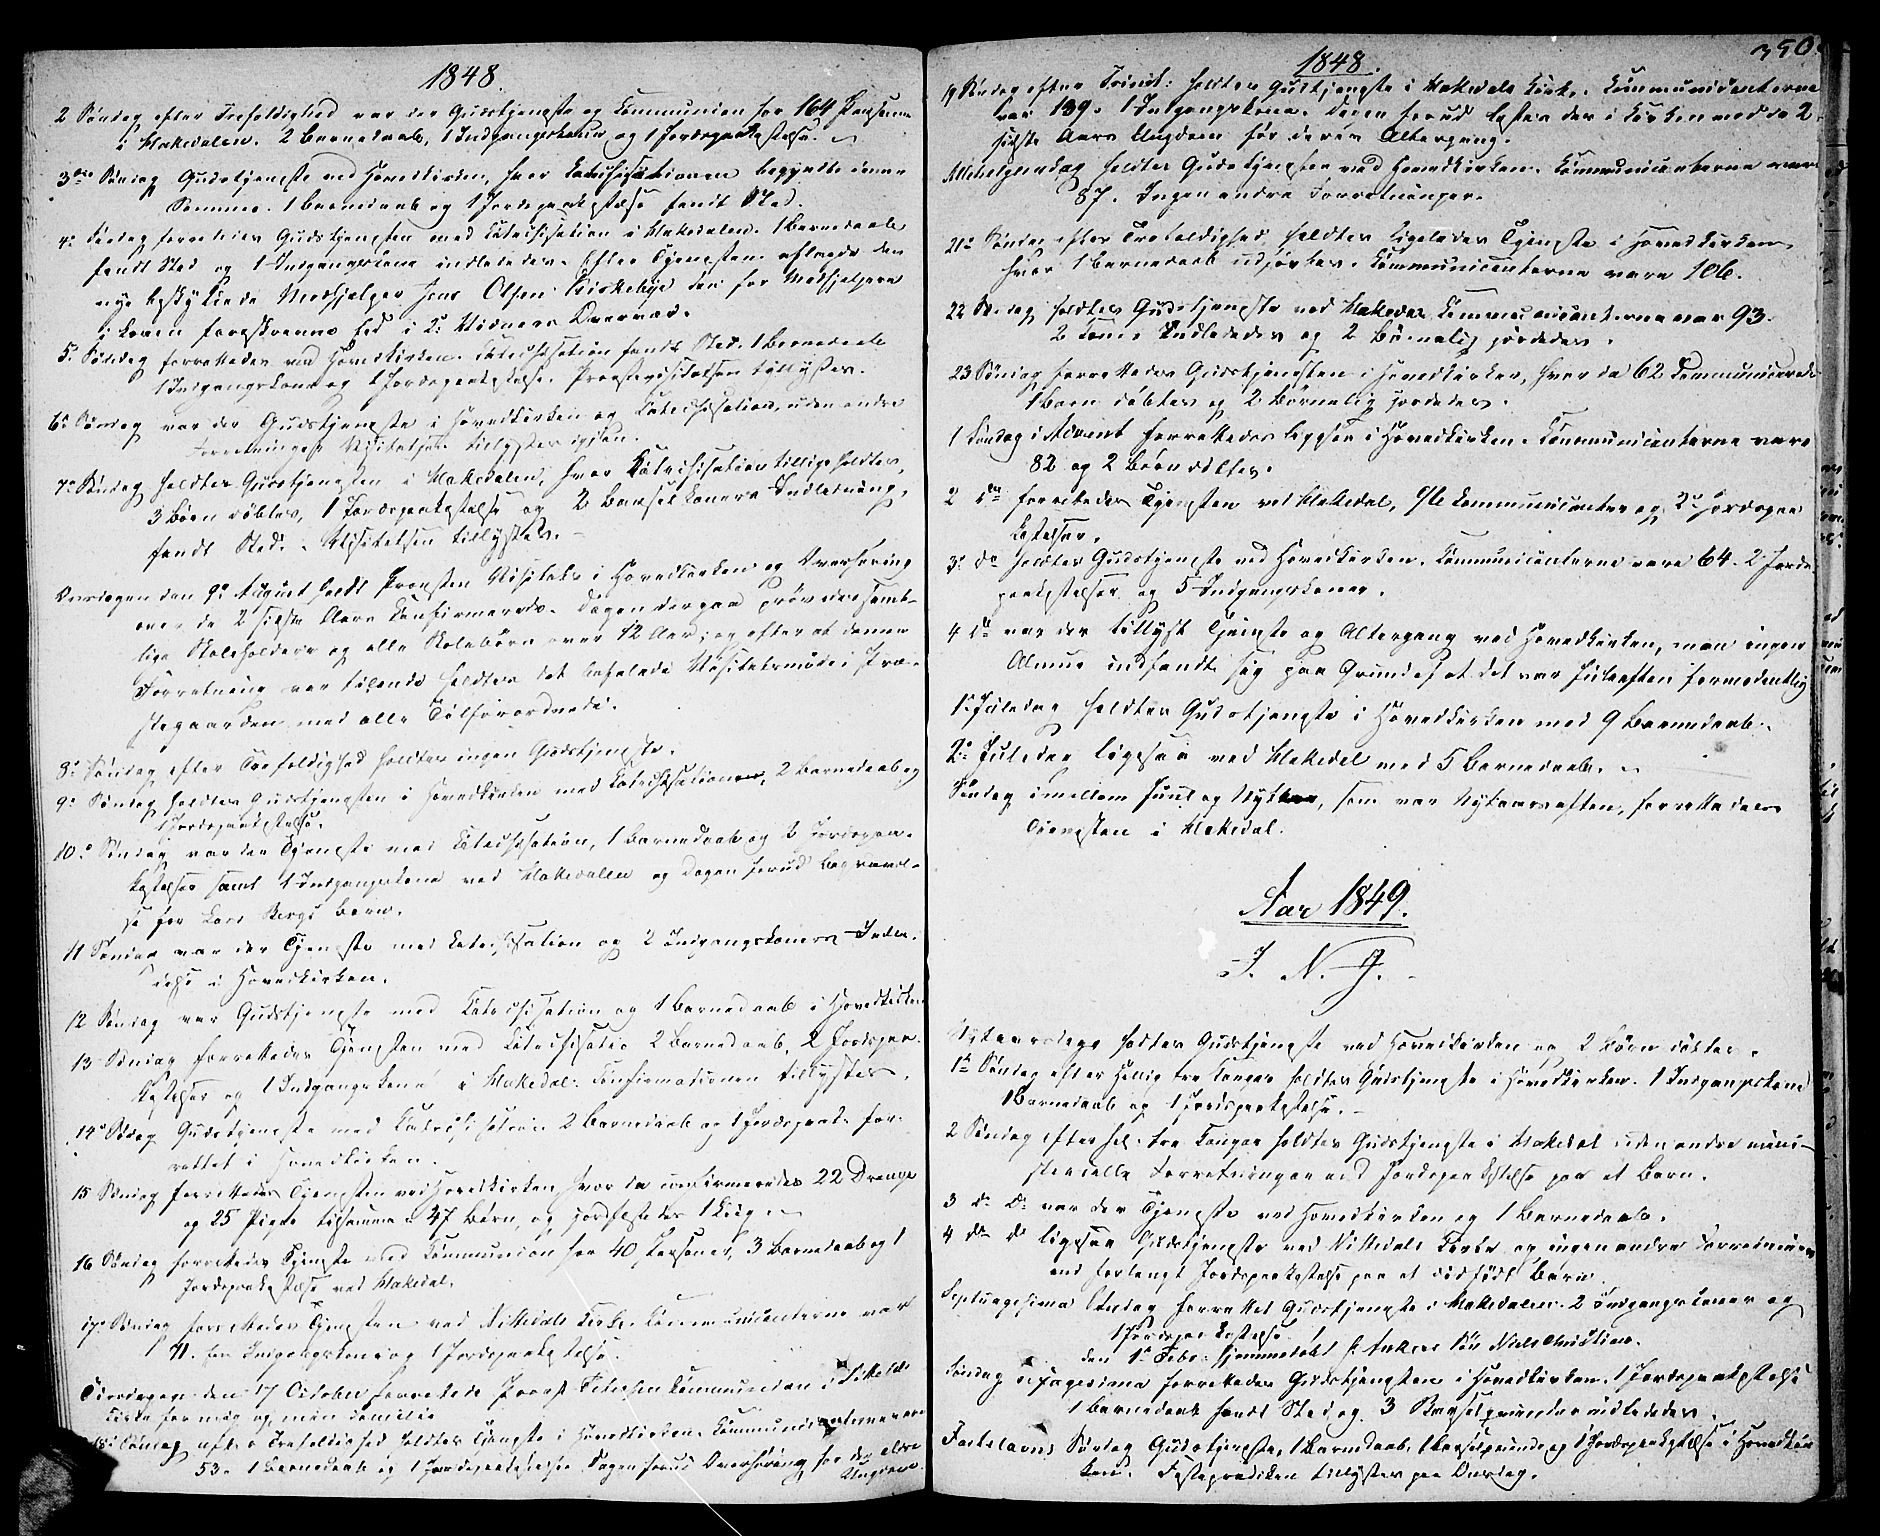 1848.
2 Søndag efter Trefoldighed var der Gudstjeneste og Communion for 164 Personer
i Hakedalen. 2 Barnedaab, 1 Indgangskone og 1 Jordspaakastelse.
3die Søndag Gudstjeneste ved Hovedkirken, hvor Catechisationen begyndte denne
Sommer. 1 Barnedaab og 1 Jordspaakastelse fandt Sted.
4de Søndag forrettedes Gudstjenesten med Catechisation i Hakedalen. 1 Barnedaab
fandt Sted og 1 Indgangskone indlededes. Efter Tjenesten aflagde den
nye beskikkede Medhjelper Jens Olsen Kirkebye den for Medhjelpere
i Loven foreskrevne Eed i 2de Vidners Overvær.
5. Søndag forrettedes ved Hovedkirken. Catechisation fandt Sted. 1 Barnedaab
1 Indgangskone og 1 Jordspaakastelse. Provstevisitatsen tillystes.
6te Søndag var der Gudstjeneste i Hovedkirken og Catechisation, uden andre
Forretninger. Visitatsen tillystes igjen.
7de Søndag holdtes Gudstjenesten i Hakedalen, hvor Catechisation tillige holdtes,
3 Børn døbtes, 1 Jordspaakastelse og 2 Barselkoners Indledning,
fandt Sted. Visitatsen tillystes.
Onsdagen den 9de August holdt Provsten Visitats i Hovedkirken og Overhøring
over de 2 sidste Aars Confirmerede. Dagen derpaa prøvedes samt-
lige Skoleholdere og alle Skolebørn over 12 Aar; og efter at denne
Forretning var tilende holdtes det befalede Visitatsmøde i Præ-
stegaarden med alle Tilforordnede.
8de Søndag efter Trefoldighed holdtes ingen Gudstjeneste.
9de Søndag holdtes Gudstjenesten i Hovedkirken med Catechisation, 2 Barnedaab og
1 Jordspaakastelse.
10de Søndag var der Tjeneste med Catechisation, 1 Barnedaab og 2 Jordspaa-
kastelser samt 1 Indgangskone ved Hakedalen og Dagen forud Begravel-
se for Lars Bergs Barn.
11 Søndag var der Tjeneste med Catechisation og 2 Indgangskoners Indle-
delse i Hovedkirken.
12 Søndag var Gudstjeneste med Catechisation og 1 Barnedaab i Hovedkirken
13 Søndag forrettedes Tjenesten med Catechisatio 2 Barnedaab, 2 Jordspaa-
kastelser og 1 Indgangskone i Hakedal. Confirmationen tillystes.
14de Sødag Gudstjeneste med Catechisation 2 Barnedaab og 1 Jordspaak. for-
rettet i Hovedkirken.
15 Søndag forrettedes Tjenesten ved Hovedkirken, hvor da confirmeredes 22 Drenge
og 25 Piger tilsammen 47 Børn, og jordfæstedes 1 Liig.
16 Søndag forrettedes Tjeneste med Communion for 40 Personer, 3 Barnedaab og 1
Jordspaakastelse ved Hakedal.
17de Søndag forrettedes Tjenesten ved Nittedals Kirke. Communicanterne var
71. En Indgangskone og 1 Jordspaakastelse.
Tirsdagen den 17 October forrettede Provst Communion i
Kirke for mig og min Familie
18de Søndag efter Trefoldighed holdtes Tjeneste i Hovedkirken. Communicanterne vare
53. 1 Barnedaab og 1 Jordspaakastelse. Dagen forud Overhøring for de ældre
Ungdom.
1848.
350
19 Søndag efter Trinit: holdtes Gudstjeneste i Hakedals Kirke. Communicanterne
var 139. 1 Indgangskone. Dagen forud læstes der i Kirken med de 2
sidste Aars Ungdom før deres Altergang.
Michelsensdag holdtes Gudstjenesten ved Hovedkirken. Communicanterne vare
87. Ingen andre Forretninger.
21de Søndag efter Trefoldighed holdtes ligeledes Tjeneste i Hovedkirken,
hvor 1 Barnedaab udførtes. Communicanterne vare 106.
22 Søndag holdtes Gudstjeneste ved Hakedal Communicanterne var 93.
2 Koner Indlededes og 2 Børnelig jordedes.
23 Søndag forrettedes Gudstjenesten i Hovedkirken, hvor da 62 Communicerede
1 Barn døbtes og 2 Børnelig jordedes.
1 Søndag i Advent forrettedes ligesaa i Hovedkirken. Communicanterne vare
82 og 2 Børn døbtes.
2 do forrettedes Tjenesten ved Hakedal, 96 Communicanter og 2de Jordspaa
kastelser.
3de do holdtes Gudstjeneste ved Hovedkirken. Communicanterne vare 64. 2 Jords-
paakastelser og 5 Indgangskoner.
4 do var der tillyst Tjeneste og Altergang ved Hovedkirken, men ingen
Almue indfandt sig paa Grund af at det var Juleaften formodentlig
1ste Juledag holdtes Gudstjeneste i Hovedkirken med 9 Barnedaab.
2den Juledag ligesaa ved Hakedal med 5 Barnedaab.
Søndag imellem Juul og Nytaar, som var Nytaarsaften, forrettedes
Tjenesten i Hakedal.
Aar 1849.
I. N. J.
Nytaarsdage holdtes Gudstjeneste ved Hovedkirken og 2 Børn døbtes.
1ste Søndag efter Hellig tre Konger holdtes Gudstjeneste i Hovedkirken. 1 Indgangskone
1 Barnedaab og 1 Jordspaakastelse.
2 Søndag efter Hel. tre Konger holdtes Gudstjeneste i Hakedal uden andre mini-
sterielle Forretninger end Jordspaakastelse paa et Barn.
3 do do var der Tjeneste ved Hovedkirken og 1 Barnedaab.
4 do do ligesaa Gudstjeneste ved Nittedals Kirke og ingen andre Forretninger
end forlangt Jordspaakastelse paa et dødfødt Barn.
Septuagesima Søndag forrettet Gudstjeneste i Hakedalen. 2 Indgangskoner og
1 Jordspaakastelse
den 1ste Febr. hjemmedøbt P. Ankers Søn Niels Christian.
Søndag Sexagesima forrettedes Gudstjenesten i Hovedkirken. 1 Jordspaakastelse
1 Barnedaab fandt Sted og 3 Barselqvinder indlededes.
Fastelavns Søndag Gudstjeneste, 1 Barnedaab, 1 Barselqvinde og 1 Jordspaakastelse i Hovedkir
ken. Fasteprædiken tillystes paa Onsdag.